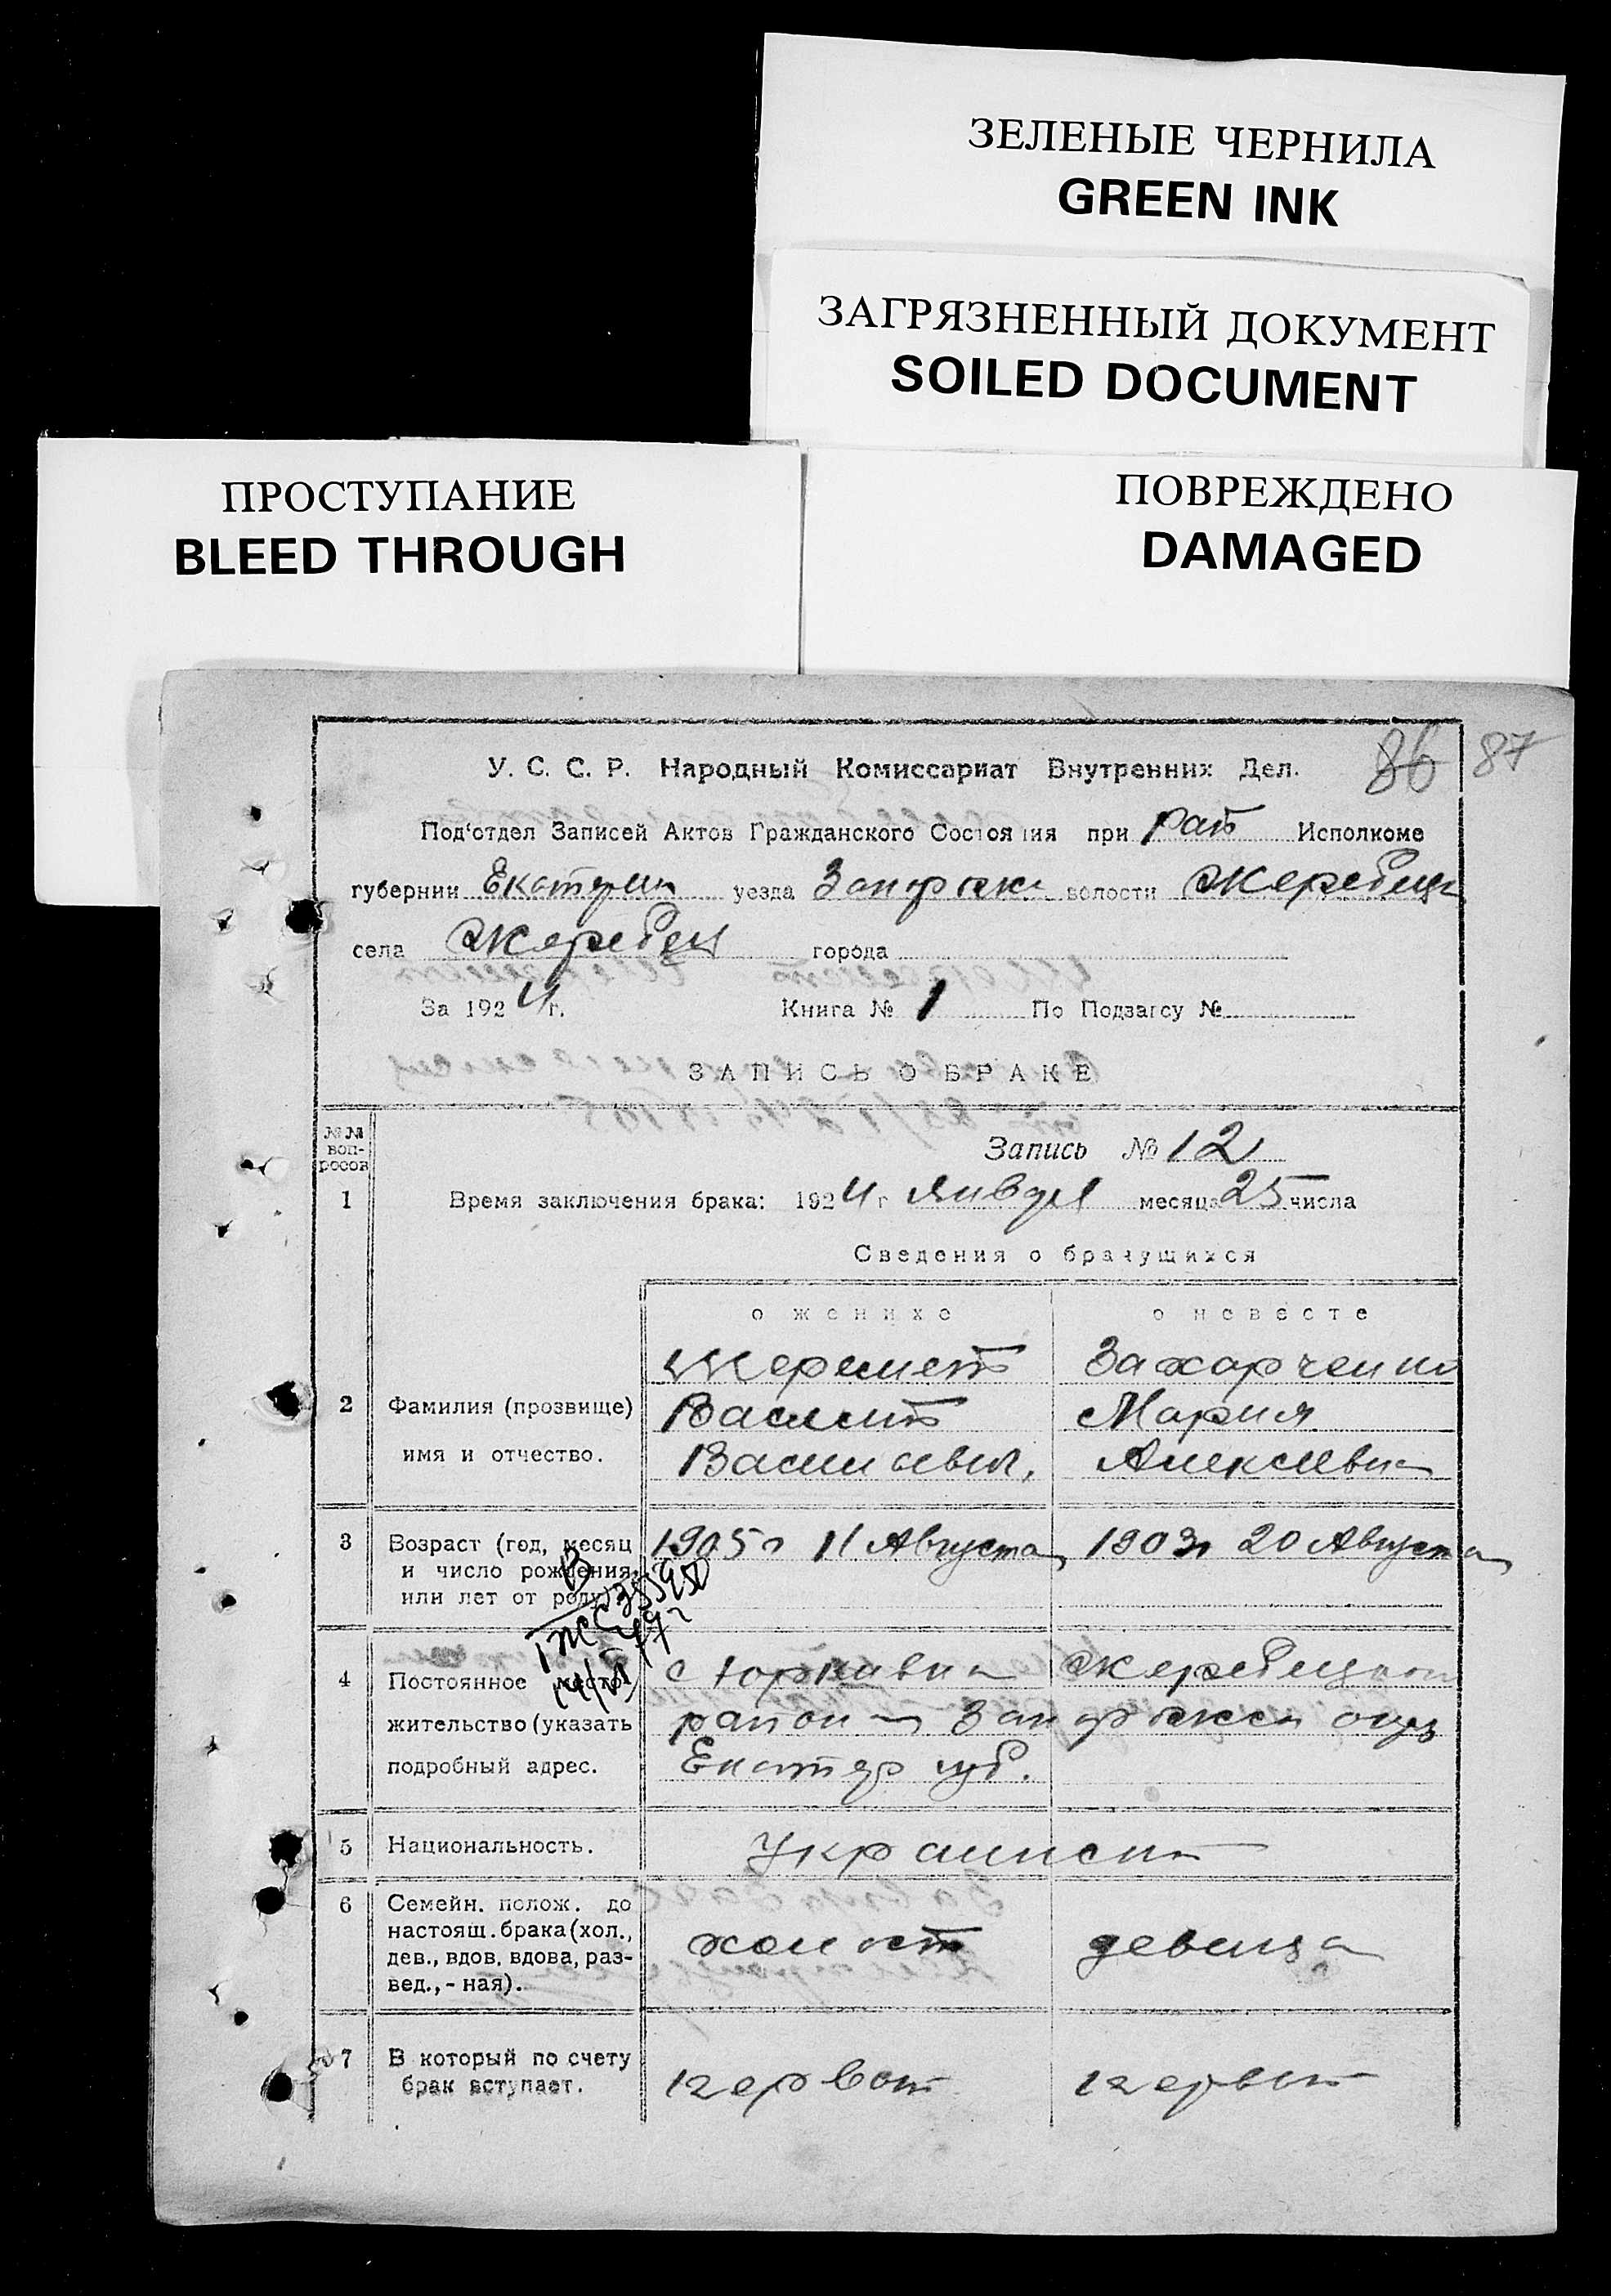 ЗЕЛЕНЫЕ ЧЕРНИЛА
GREEN INK
ЗАГРЯЗНЕННЫЙ ДОКУМЕНТ
SOILED DOCUMENT
ПРОСТУПАНИЕ
BLEED THROUGH
ПОВРЕЖДЕНО
DAMAGED
86 87
У. С. С. Р. Народный Комиссариат Внутренних Дел.
Под'отдел Записей Актов Гражданского Состояния при Исполкоме
губернии Екатерин уезда волости Жеребецк
села Жеребец города
За 1924 г. Книга № 1 По Подзагсу №
ЗАПИСЬ О БРАКЕ
№№ воп-
росов
Запись № 12
1 Время заключения брака: 1924 г Января месяца 25 числа
Сведения о брачущихся
о женихе о невесте
Шеремет Захарченко
2 Фамилия (прозвище) Василий Мария
имя и отчество. Васильевич. Алексеевна
3 Возраст (год, месяц 1905 г 11 Августа 1903 г 20 Августа
и число рождения
или лет от роду)
4 Постоянное место с Юрковка Жеребецкого
жительство (указать района Запорожск окр
подробный адрес. Екатер губ.
5 Национальность.
6 Семейн. полож. до
настоящ. брака (хол., холост девица
дев., вдов. вдова, раз-
вед., - ная).
7 В который по счету
брак вступает. первой первой